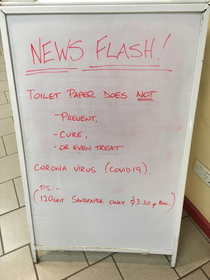 NEWS FLASH!
TOILET PAPER DOES NOT
- PREVENT,
- CURE,
- OR EVEN TREAT
CORONA VIRUS (COVID19).
PS:-
(120GRIT SANDPAPER ONLY $3.20